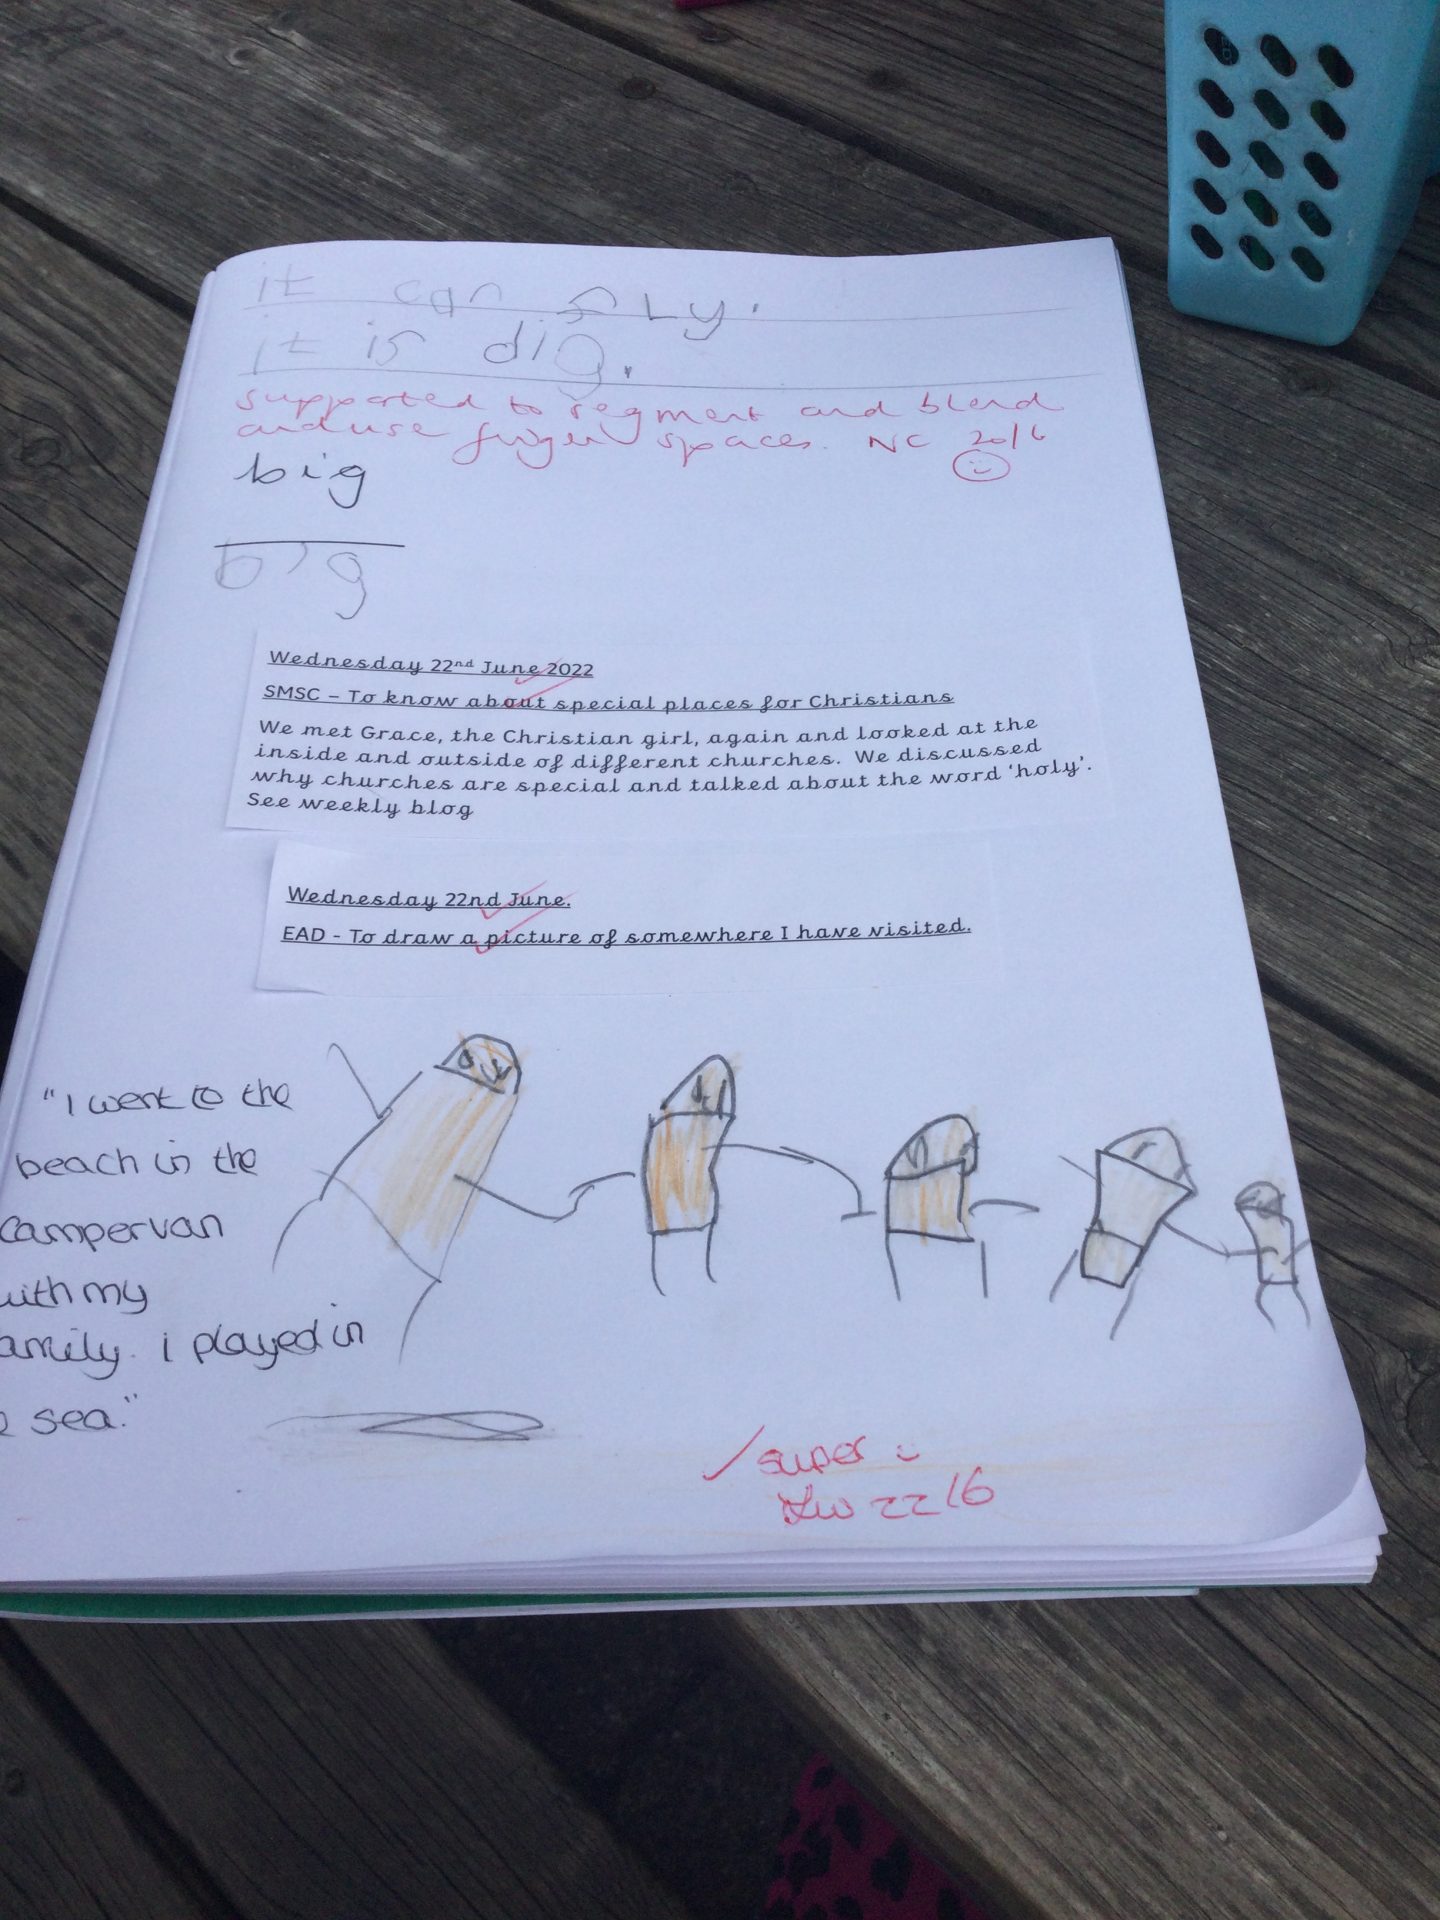 it can fly.
it is dig.
supported to segment and blend
and use finger spaces. NC 20/6
big
big
Wednesday 22nd June 2022
SMSC – To know about special places for Christians
We met Grace, the Christian girl, again and looked at the
inside and outside of different churches. We discussed
why churches are special and talked about the word ‘holy’.
See weekly blog
Wednesday 22nd June.
EAD - To draw a picture of somewhere I have visited.
"I went to the
beach in the
campervan
with my
family. I played in
sea."
super
22/6